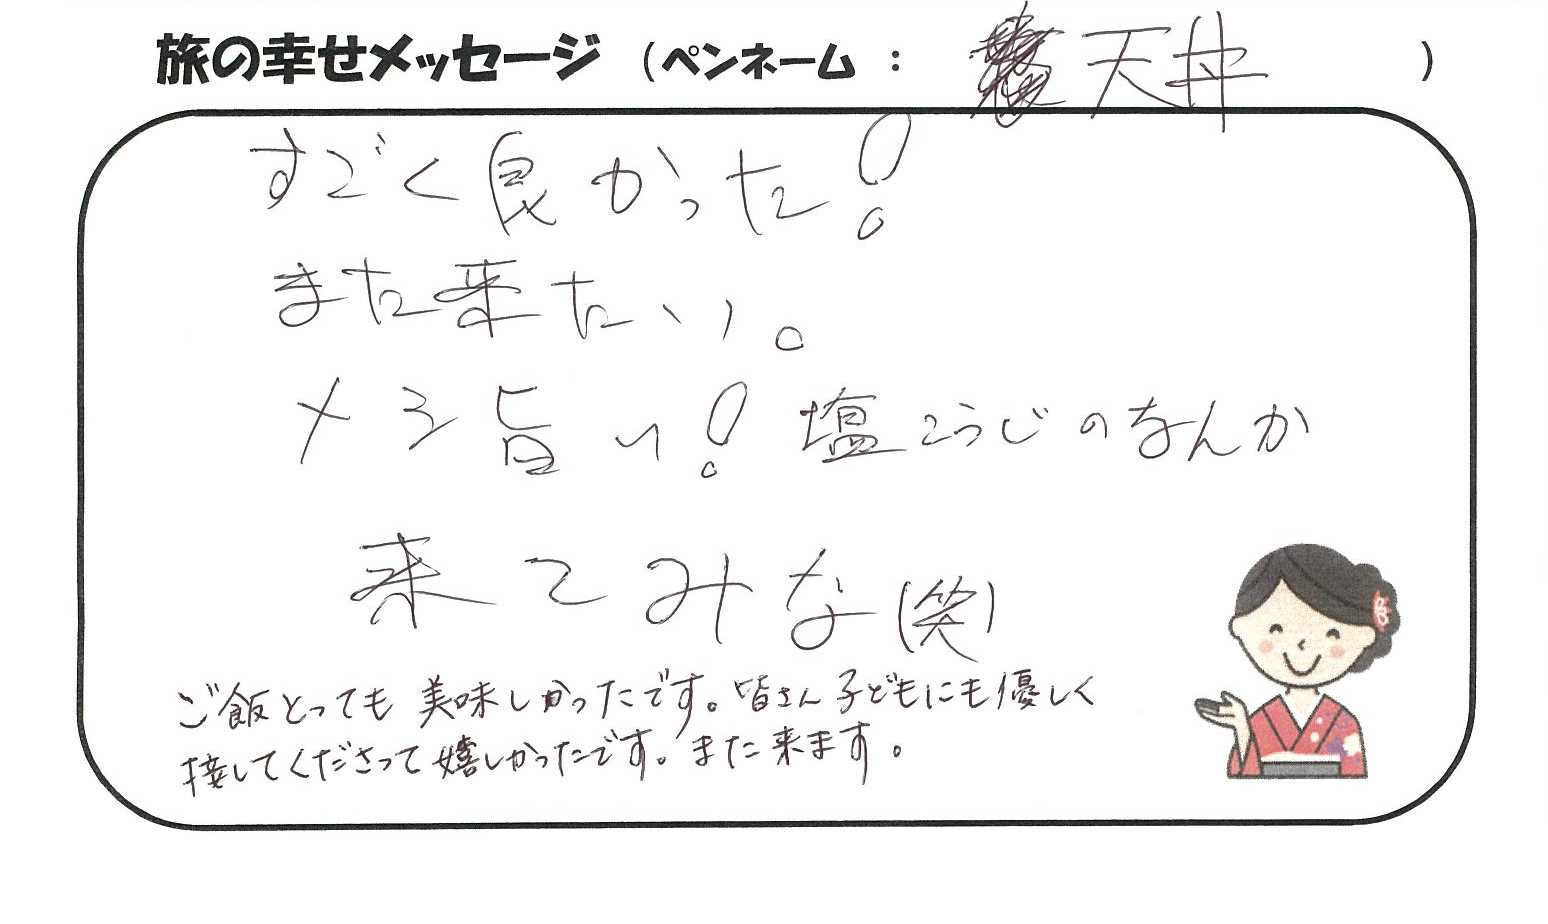 旅の幸せメッセージ (ペンネーム : 天丼 )
すごく良かった!
また来たい。
メシ旨い! 塩こうじのなんか
来てみな(笑)
ご飯とっても美味しかったです。皆さん子どもにも優しく
接してくださって嬉しかったです。また来ます。